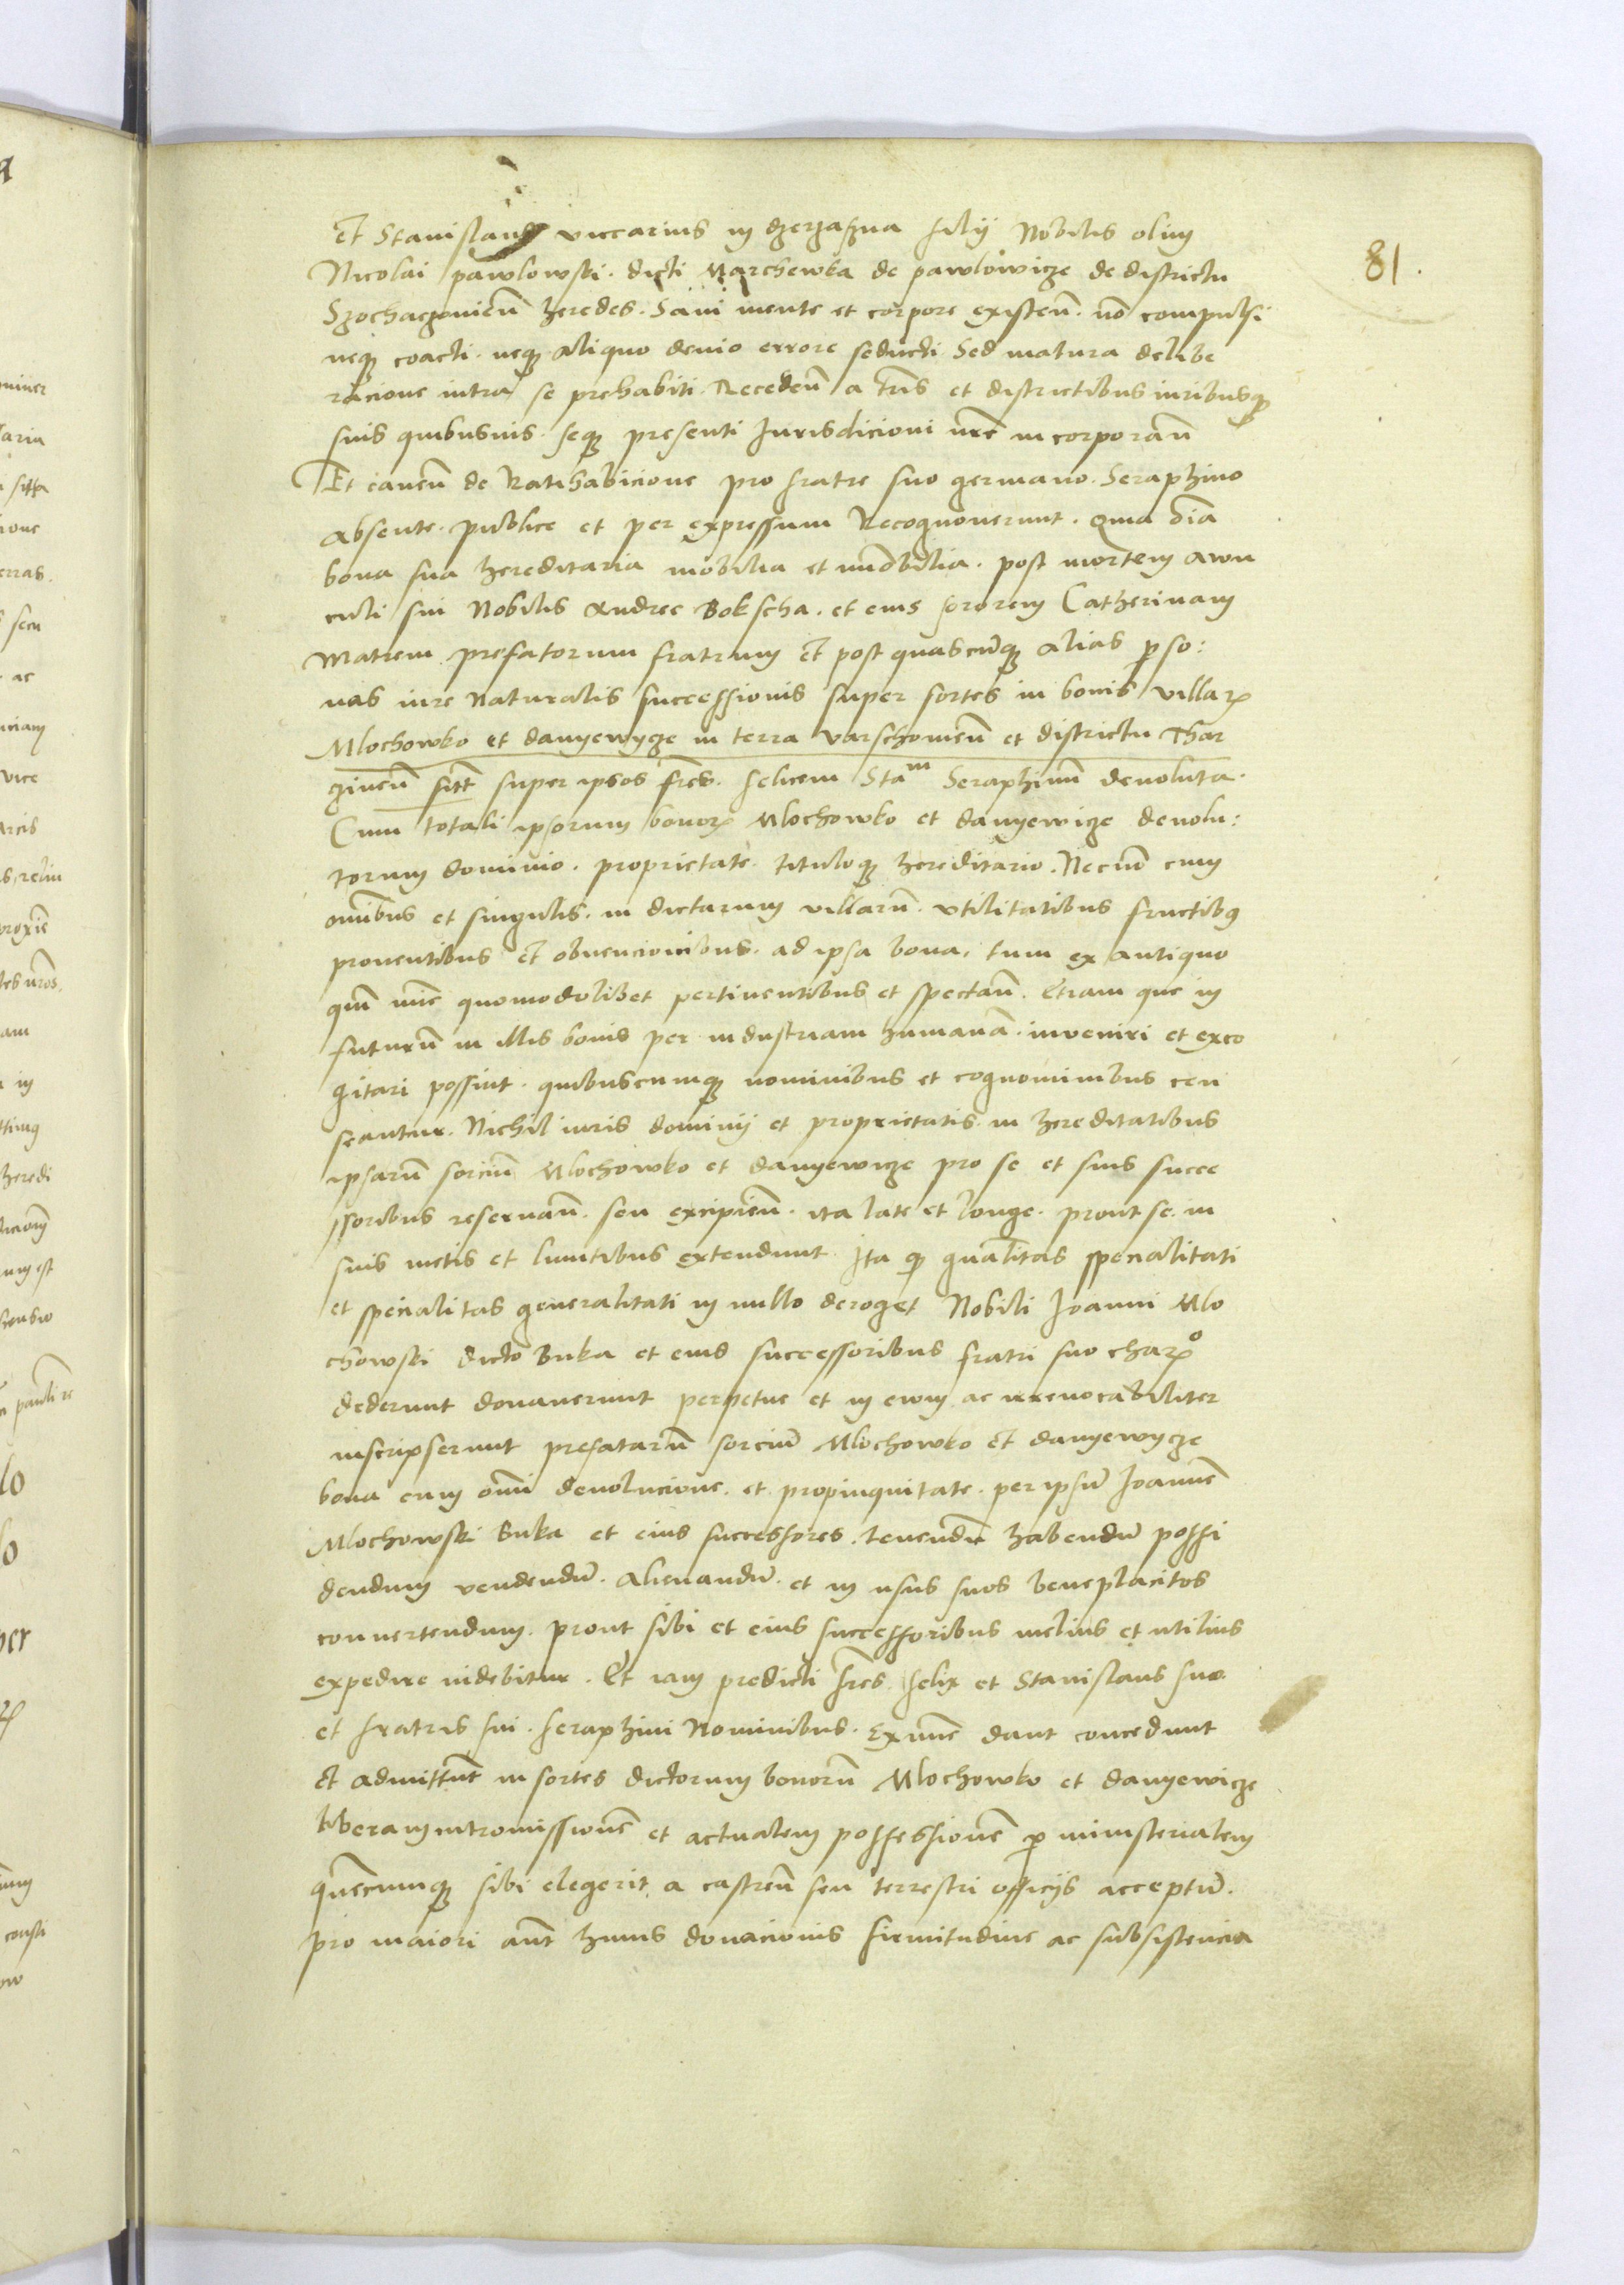 81.
Et Stanislaus viccarius in filij Nobilis olim
Nicolai pawlowski. dicti Marchewka de pawlowicze de districtu
Szochaczouien̄ heredes. Sani mente et corpore existen̄. nō compulsi
neqz coacti. neqz aliquo deuio errore seducti Sed matura delibe
racione intra se prehabiti. Receden̄ a tr̄is et districtibus iuribusqz
suis quibusuis. seqz presenti Jurisdicioni nr̄e incorporan̄
Et cauen̄ de Ratihabicione pro fratre suo germano. Seraphino
absente. publice et per expressum Recognouerunt. Quia oīa
bona sua hereditaria mobilia et īmobilia. post mortem awn
culi sui Nobilis Andree Bokscha. et eius sororem Catherinam
Matrem prefatorum fratrum et post quascūqz alias pso:
nas iure Naturalis successionis super sortes in bonis villarꝝ
Mlochowko et danyewycze in terra varschouien̄ et districtu Thar
ginen̄ sitt super ipsos fr̄es. felicem Staᵐ Seraphinū deuoluta.
Cum totali ipsorum bonorꝝ Mlochowko et danyewicze deuolu:
torum dominio. proprietate. tituloqz hereditario. Necnō cum
omībus et singulis. in dictarum villarū. vtilitatibus fructibꝰ
prouentibus et obuencionibus. ad ipsa bona. tum ex antiquo
qm̄ nūc quomodolibet pertinentibus et spectan̄. Etiam que in
futurū in illis bonis per industriam humanā. inveniri et exco
gitari possint. quibuscumqz nominibus et cognominibus cen
seantur. Nichil iuris dominij et proprietatis in hereditatibus
ipsarū sorciū Mlochowko et danyewicze pro se et suis succe
ssoribus reseruan̄. seu excipien̄. ita late et longe. prout se in
suis metis et limitibus extendunt. Ita qz specialitati
et specialitas generalitati in nullo deroget Nobili Joanni Mlo
chowski dicto Buka et eius successoribus fratri suo charꝝº
dederunt donauerunt perpetue et in ewm ac irreuocabiliter
inscripserunt prefatarū sorciū Mlochowko et danyewycze
bona cum omī deuolucione. et propinquitate. per ipsū Joannē
Mlochowski Buka et eius successores. tenendū habendū possi
dendum vendendū. alienandū. et in usus suos beneplacitos
conuertendum. prout sibi et eius successoribus melius et utilius
expedire uidebitur. Et iam predicti fr̄es felix et Stanislaus suo
et fratris sui. seraphini Nominibus. Exnunc dant concedunt
et admittunt in sortes dictorum bonorū Mlochowko et danyewicze
liberam intromissionē et actualem possessionē p ministerialem
quēcumqz sibi elegerit a castren̄ seu terrestri officijs acceptū.
pro maiori aūt huius donacionis firmitudine ac subsistencia